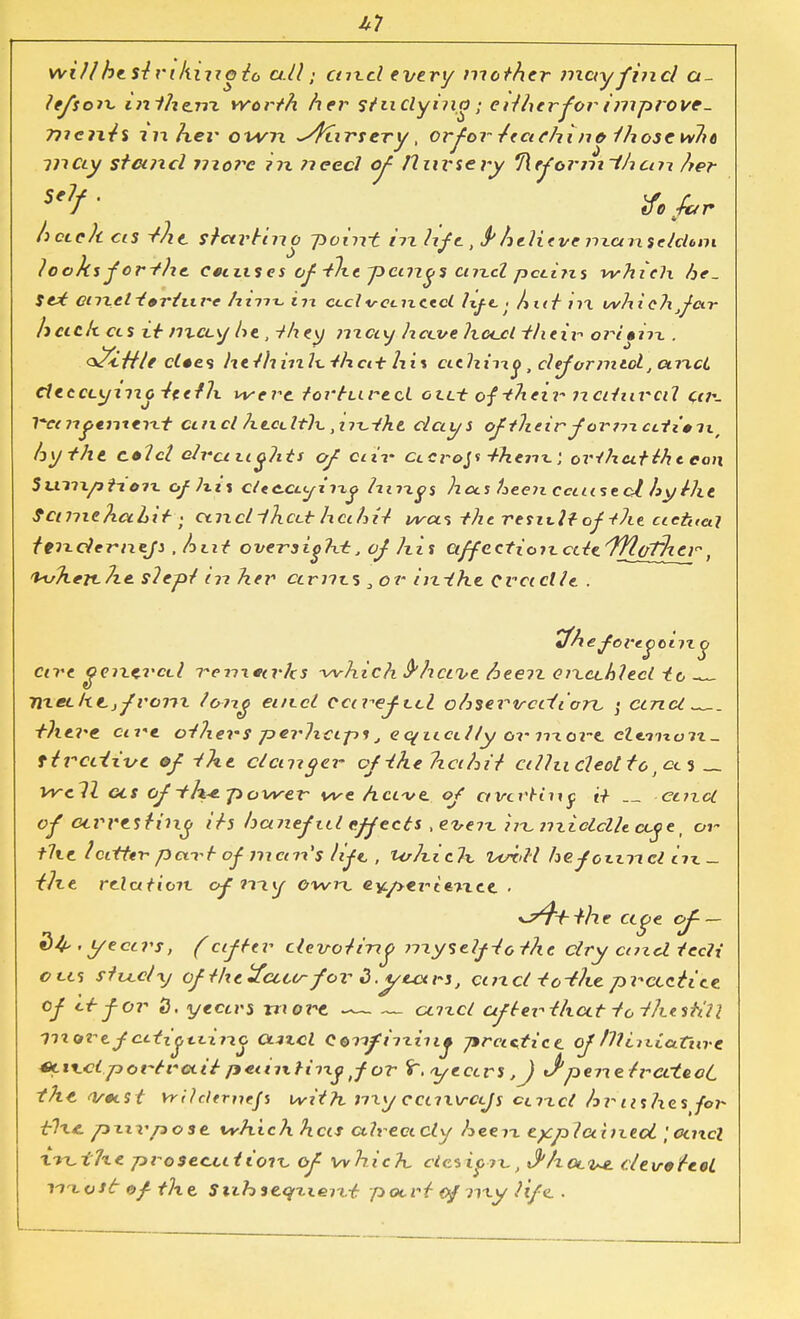 47
will be striking to all; and every mother may find a-
lesson in them worth her studying; either for improve-
ments in her own Nursery, or for teaching those who
may stand more in need of Nursery Reform than her
self.
So far
back as the starting point in life, I believe man seldom
looks for the causes of the pangs and pains which be-
set and torture him in advanced life; but in which, far
back as it may be, they may have had their origin.
Little does he think that his aching, deformed, and
decaying teeth were tortured out of their natural ar-
rangement and health, in the days of their formation,
by the cold draughts of air across them; or that the con
sumption of his decaying lungs has been caused by the
same habit; and that habit was the result of the actual
tenderness, but oversight, of his affectionate Mother,
when he slept in her arms, or in the Cradle.
The foregoing
are general remarks which I have been enabled to —
make, from long and careful observation; and —
there are others perhaps, equally or more demon-
strative of the danger of the habit alluded to, as —
well as of the power we have of averting it — and
of arresting its baneful effects, even in middle age, or
the latter part of man's life, which will be found in —
the relation of my own experience.
At the age of —
34, years, (after devoting myself to the dry and tedi
ous study of the Law for 3. years, and to the practice
of it for 3. years more —— and after that to the still
more fatiguing and Confining practice of Miniature
and portrait painting, for 8. years,) I penetrated
the vast wilderness with my canvass and brushes, for
the purpose which has already been explained; and
in the prosecution of which design, I have devoted
most of the Subsequent part of my life.